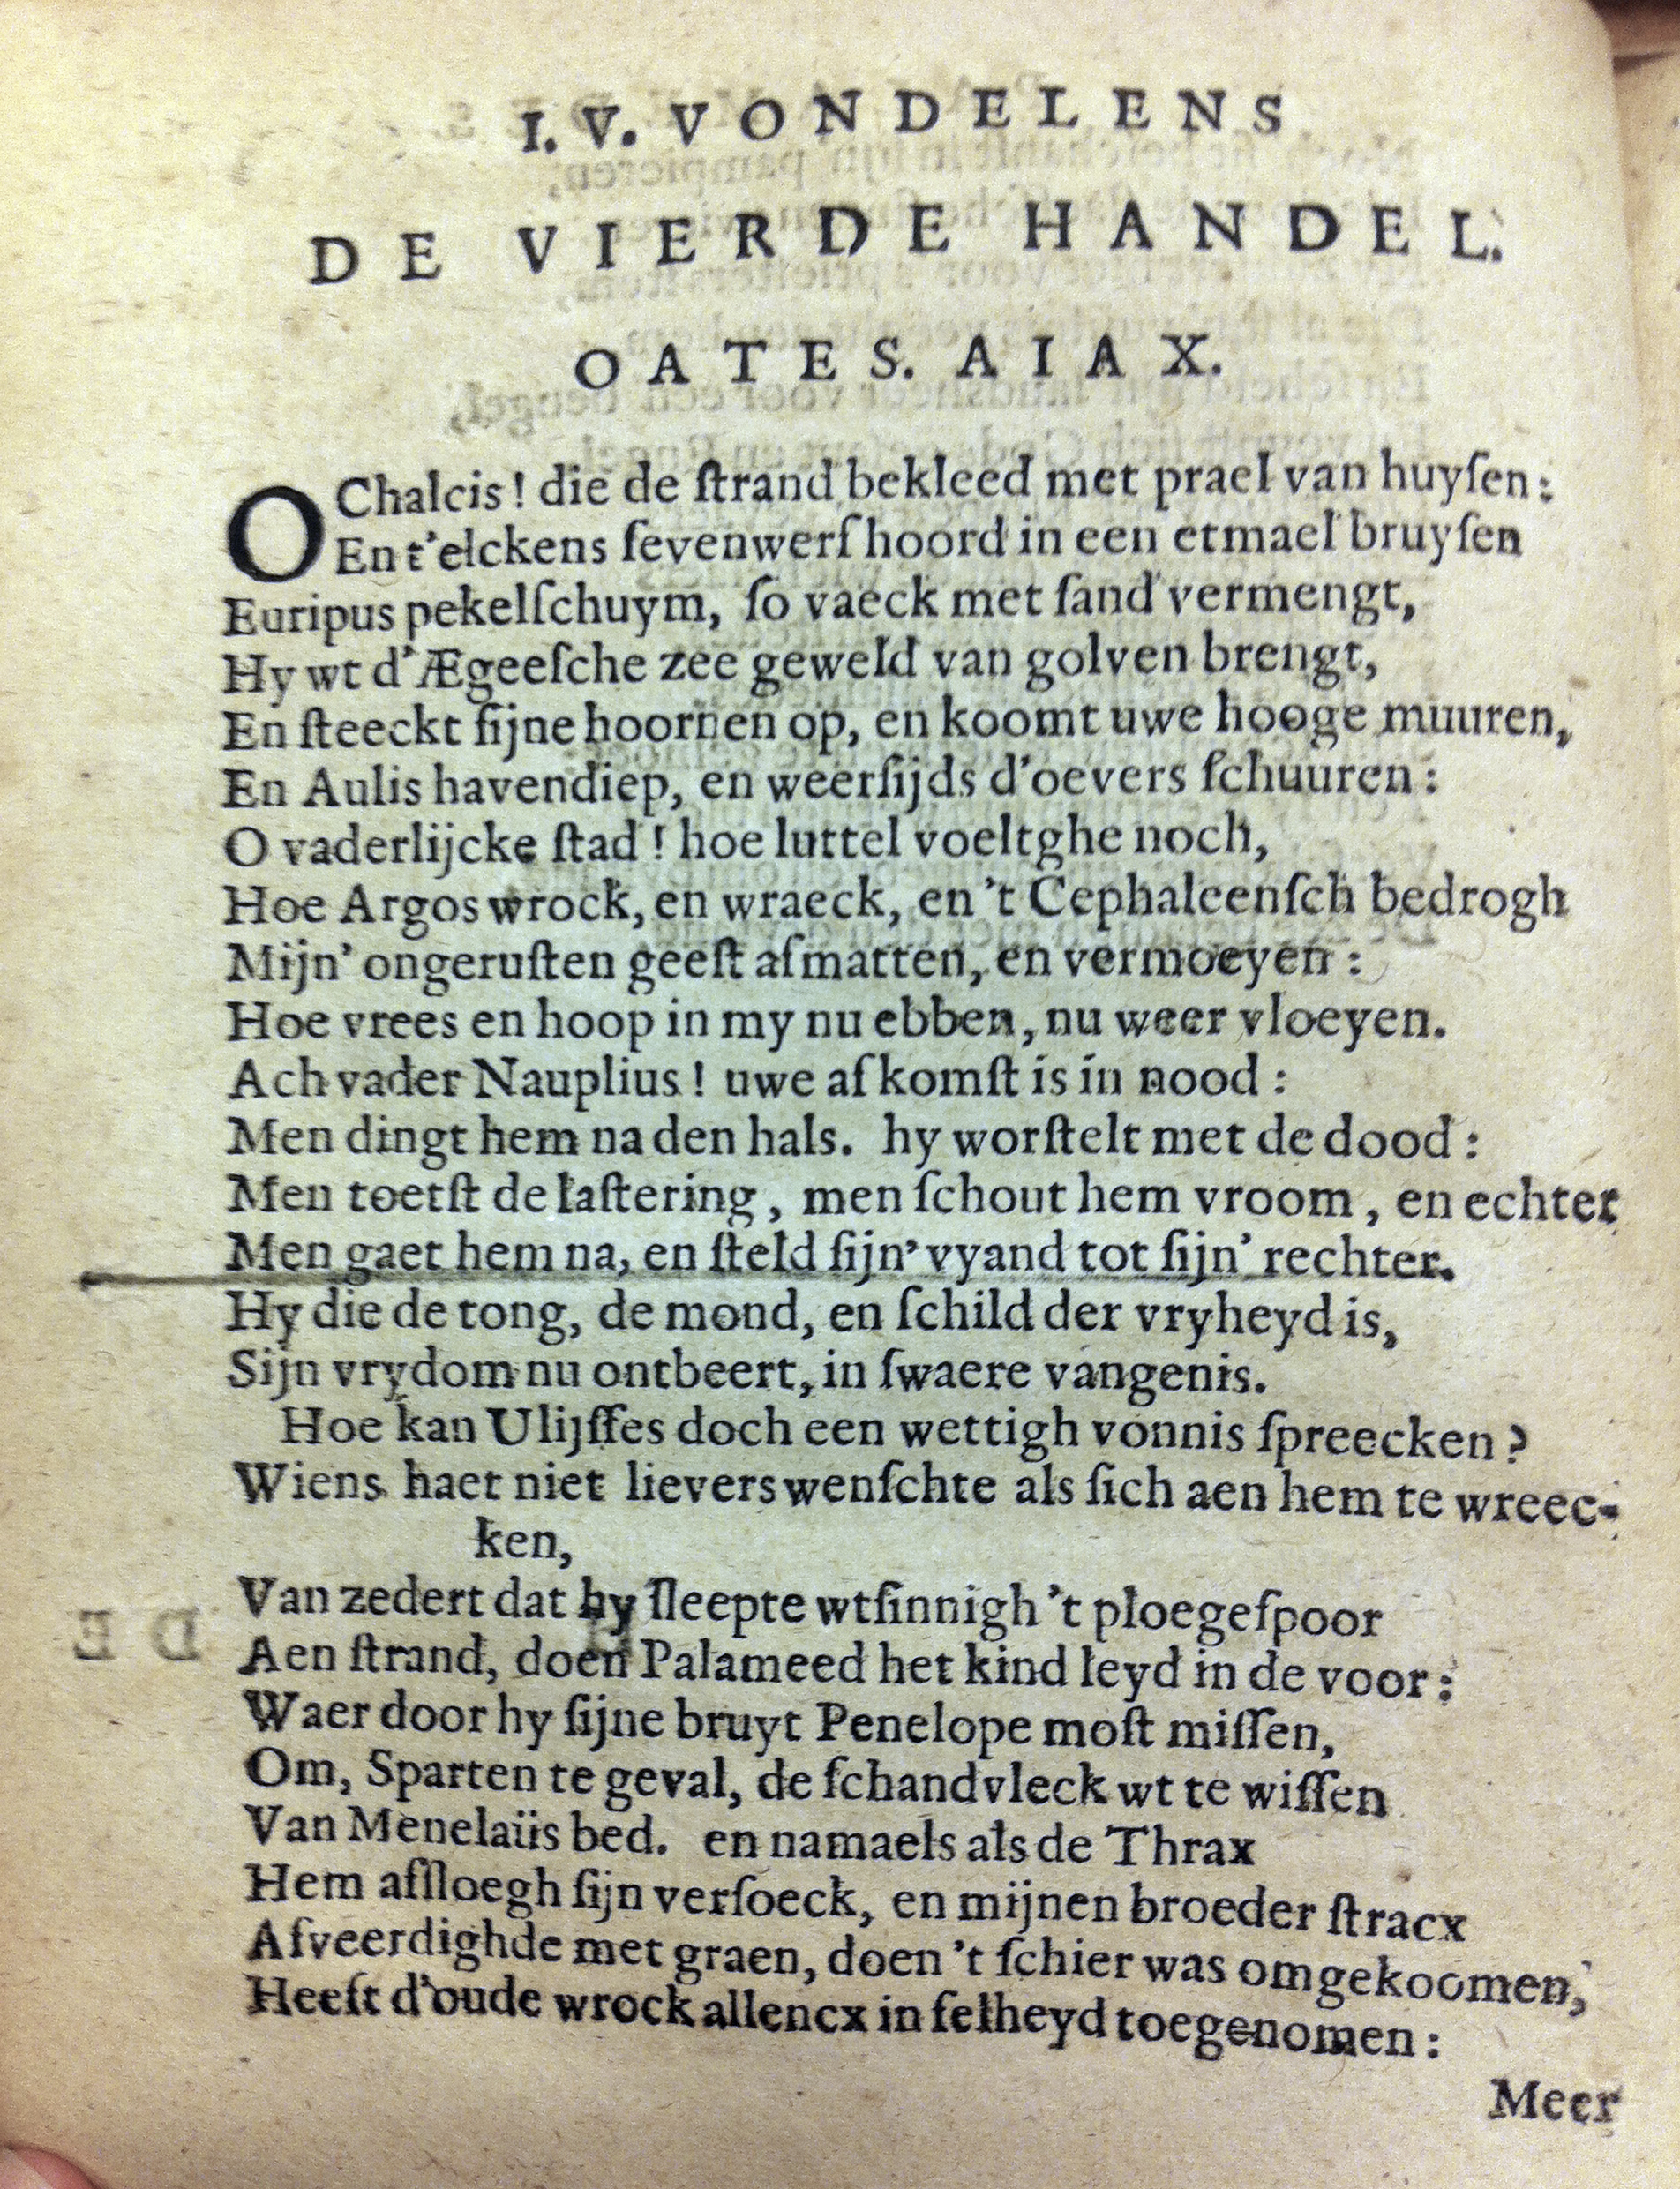 I. V. VONDELENS
DE VIERDE HANDEL.
OATES. AIAX.
O Chalcis! die de ſtrand bekleed met prael van huyſen:
En t'elckens ſevenwerf hoord in een etmael bruyſen
Euripus pekelſchuym, ſo vaeck met ſand vermengt,
Hy wt d'Ægeeſche zee geweld van golven brengt,
En ſteeckt ſijne hoornen op, en koomt uwe hooge muuren,
En Aulis havendiep, en weerſijds d'oevers ſchuuren:
O vaderlijcke ſtad! hoe luttel voeltghe noch,
Hoe Argos wrock, en wraeck, en 't Cephaleenſch bedrogh
Mijn' ongeruſten geeſt afmatten, en vermoeyen:
Hoe vrees en hoop in my nu ebben, nu weer vloeyen.
Ach vader Nauplius! uwe afkomſt is in nood:
Men dingt hem na den hals. hy worſtelt met de dood:
Men toetſt de laſtering, men ſchout hem vroom, en echter
Men gaet hem na, en ſteld ſijn' vyand tot ſijn' rechter.
Hy die de tong, de mond, en ſchild der vryheyd is,
Sijn vrydom nu ontbeert, in ſwaere vangenis.
Hoe kan Ulijſſes doch een wettigh vonnis ſpreecken?
Wiens haet niet lievers wenſchte als ſich aen hem te wreec-
ken,
Van zedert dat hy ſleepte wtſinnigh 't ploegeſpoor
Aen ſtrand, doen Palameed het kind leyd in de voor:
Waer door hy ſijne bruyt Penelope moſt miſſen,
Om, Sparten te geval, de ſchandvleck wt te wiſſen
Van Menelaüs bed. en namaels als de Thrax
Hem afſloegh ſijn verſoeck, en mijnen broeder ſtracx
Afveerdighde met graen, doen 't ſchier was omgekoomen,
Heeft d'oude wrock allencx in felheyd toegenomen:
Meer